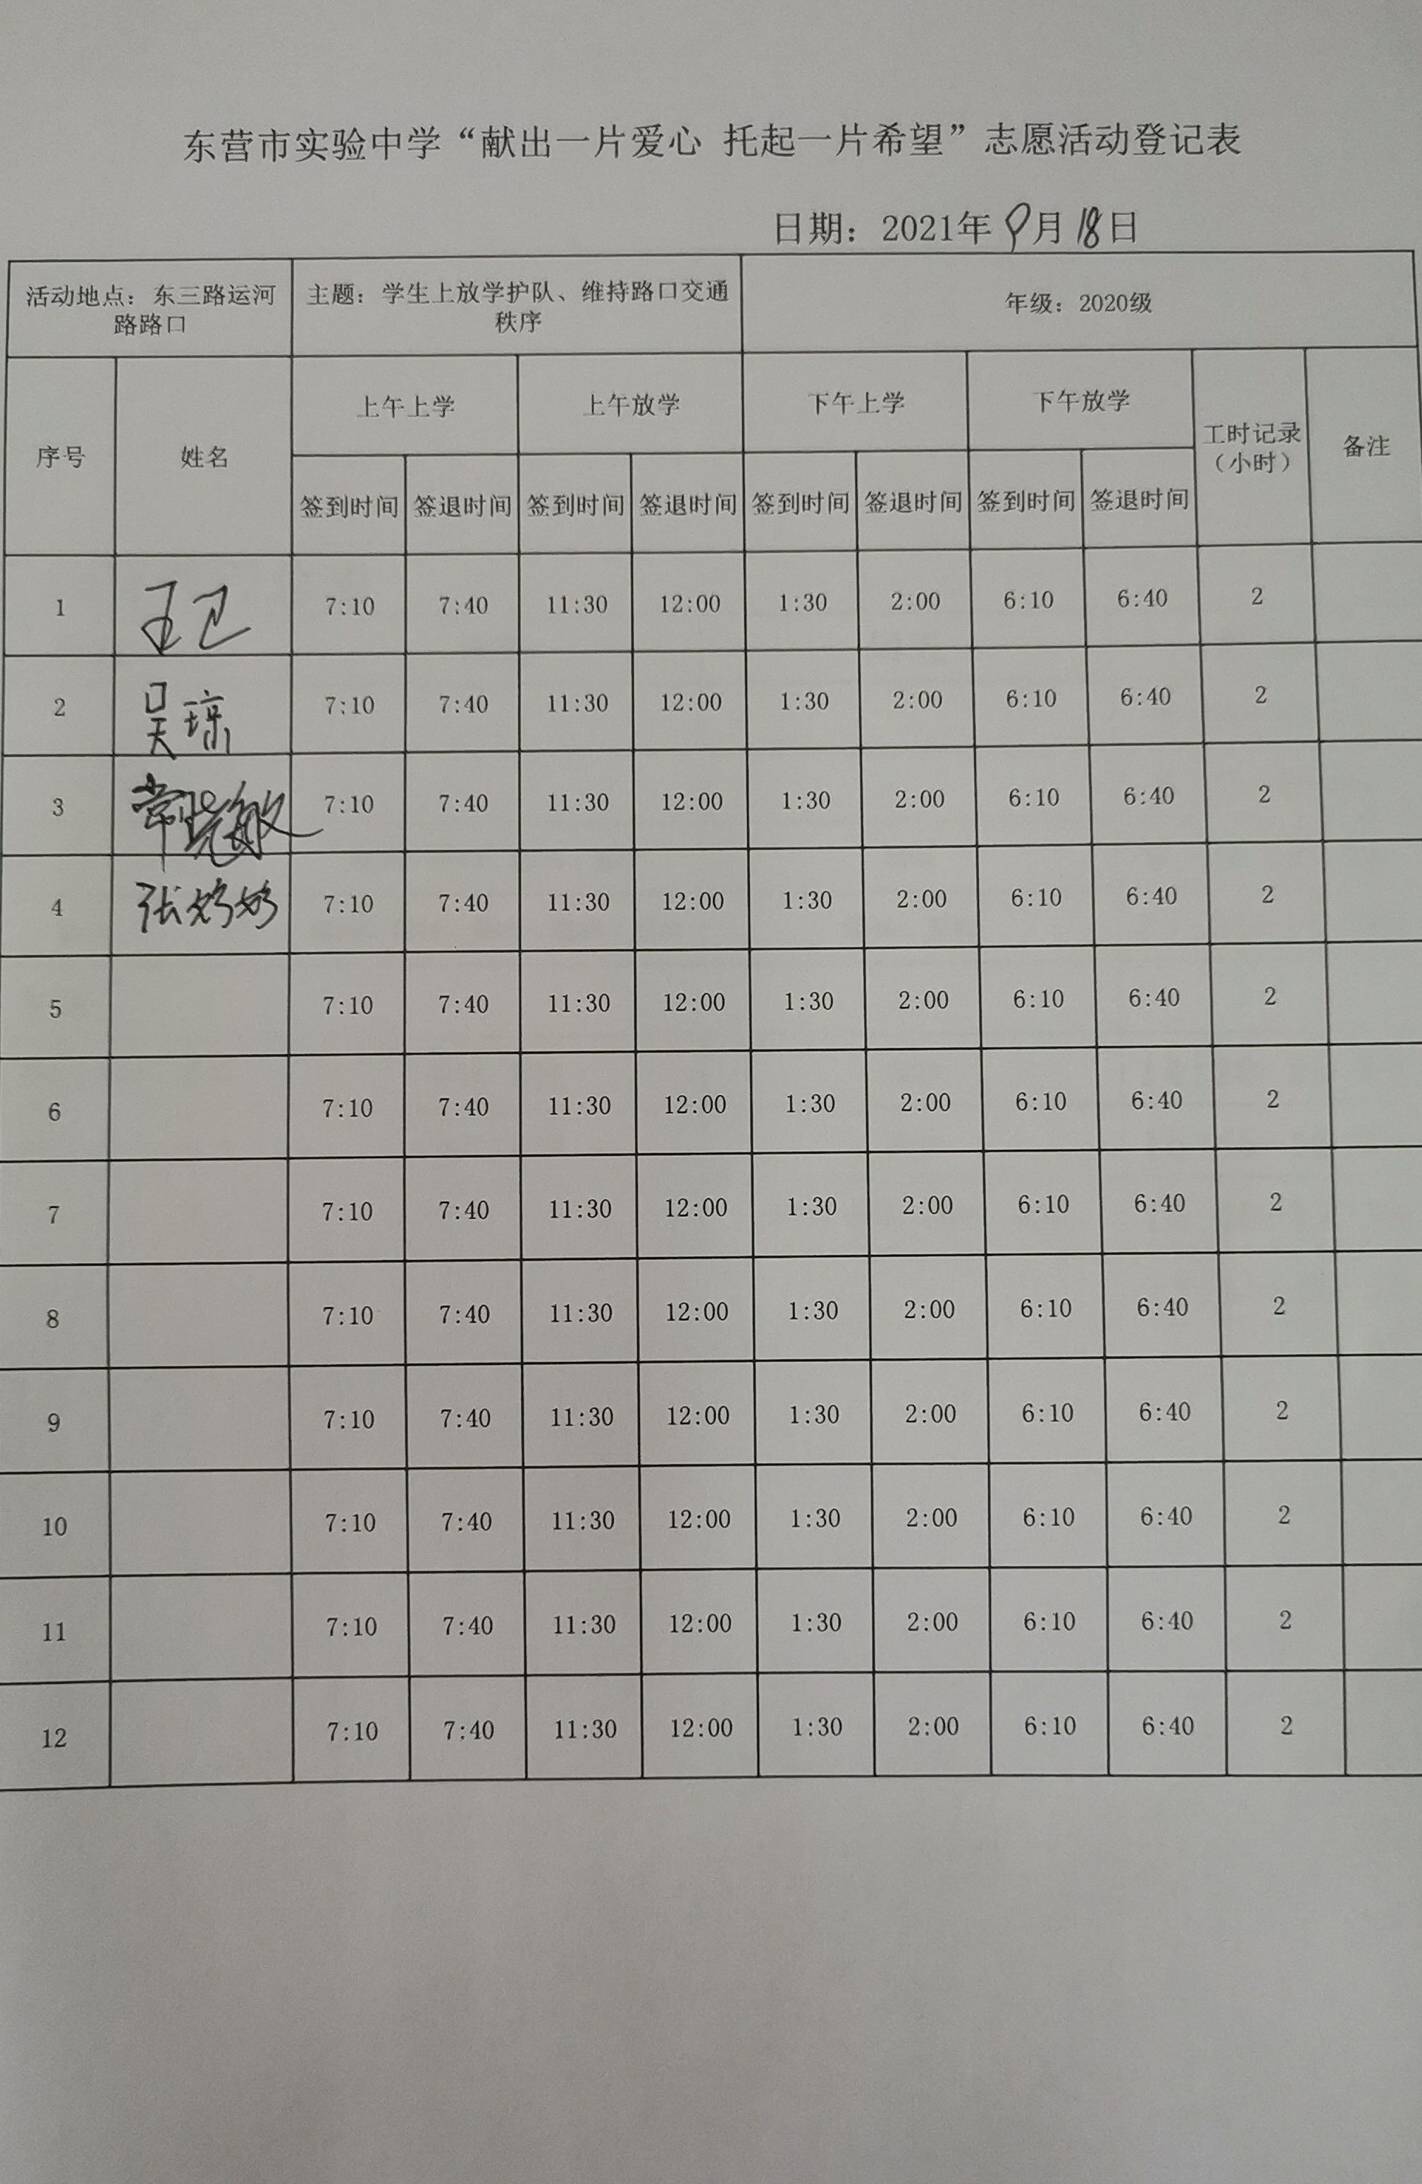 东营市实验中学“献出一片爱心 托起一片希望”志愿活动登记表
日期：2021年 9月 18日
活动地点：东三路运河路路口 主题：学生上放学护队、维持路口交通秩序 年级：2020级
序号 姓名 上午上学 上午放学 下午上学 下午放学 工时记录（小时） 备注
签到时间 签退时间 签到时间 签退时间 签到时间 签退时间 签到时间 签退时间
1 王卫 7:10 7:40 11:30 12:00 1:30 2:00 6:10 6:40 2
2 吴琼 7:10 7:40 11:30 12:00 1:30 2:00 6:10 6:40 2
3 常晓敏 7:10 7:40 11:30 12:00 1:30 2:00 6:10 6:40 2
4 张 7:10 7:40 11:30 12:00 1:30 2:00 6:10 6:40 2
5 7:10 7:40 11:30 12:00 1:30 2:00 6:10 6:40 2
6 7:10 7:40 11:30 12:00 1:30 2:00 6:10 6:40 2
7 7:10 7:40 11:30 12:00 1:30 2:00 6:10 6:40 2
8 7:10 7:40 11:30 12:00 1:30 2:00 6:10 6:40 2
9 7:10 7:40 11:30 12:00 1:30 2:00 6:10 6:40 2
10 7:10 7:40 11:30 12:00 1:30 2:00 6:10 6:40 2
11 7:10 7:40 11:30 12:00 1:30 2:00 6:10 6:40 2
12 7:10 7:40 11:30 12:00 1:30 2:00 6:10 6:40 2